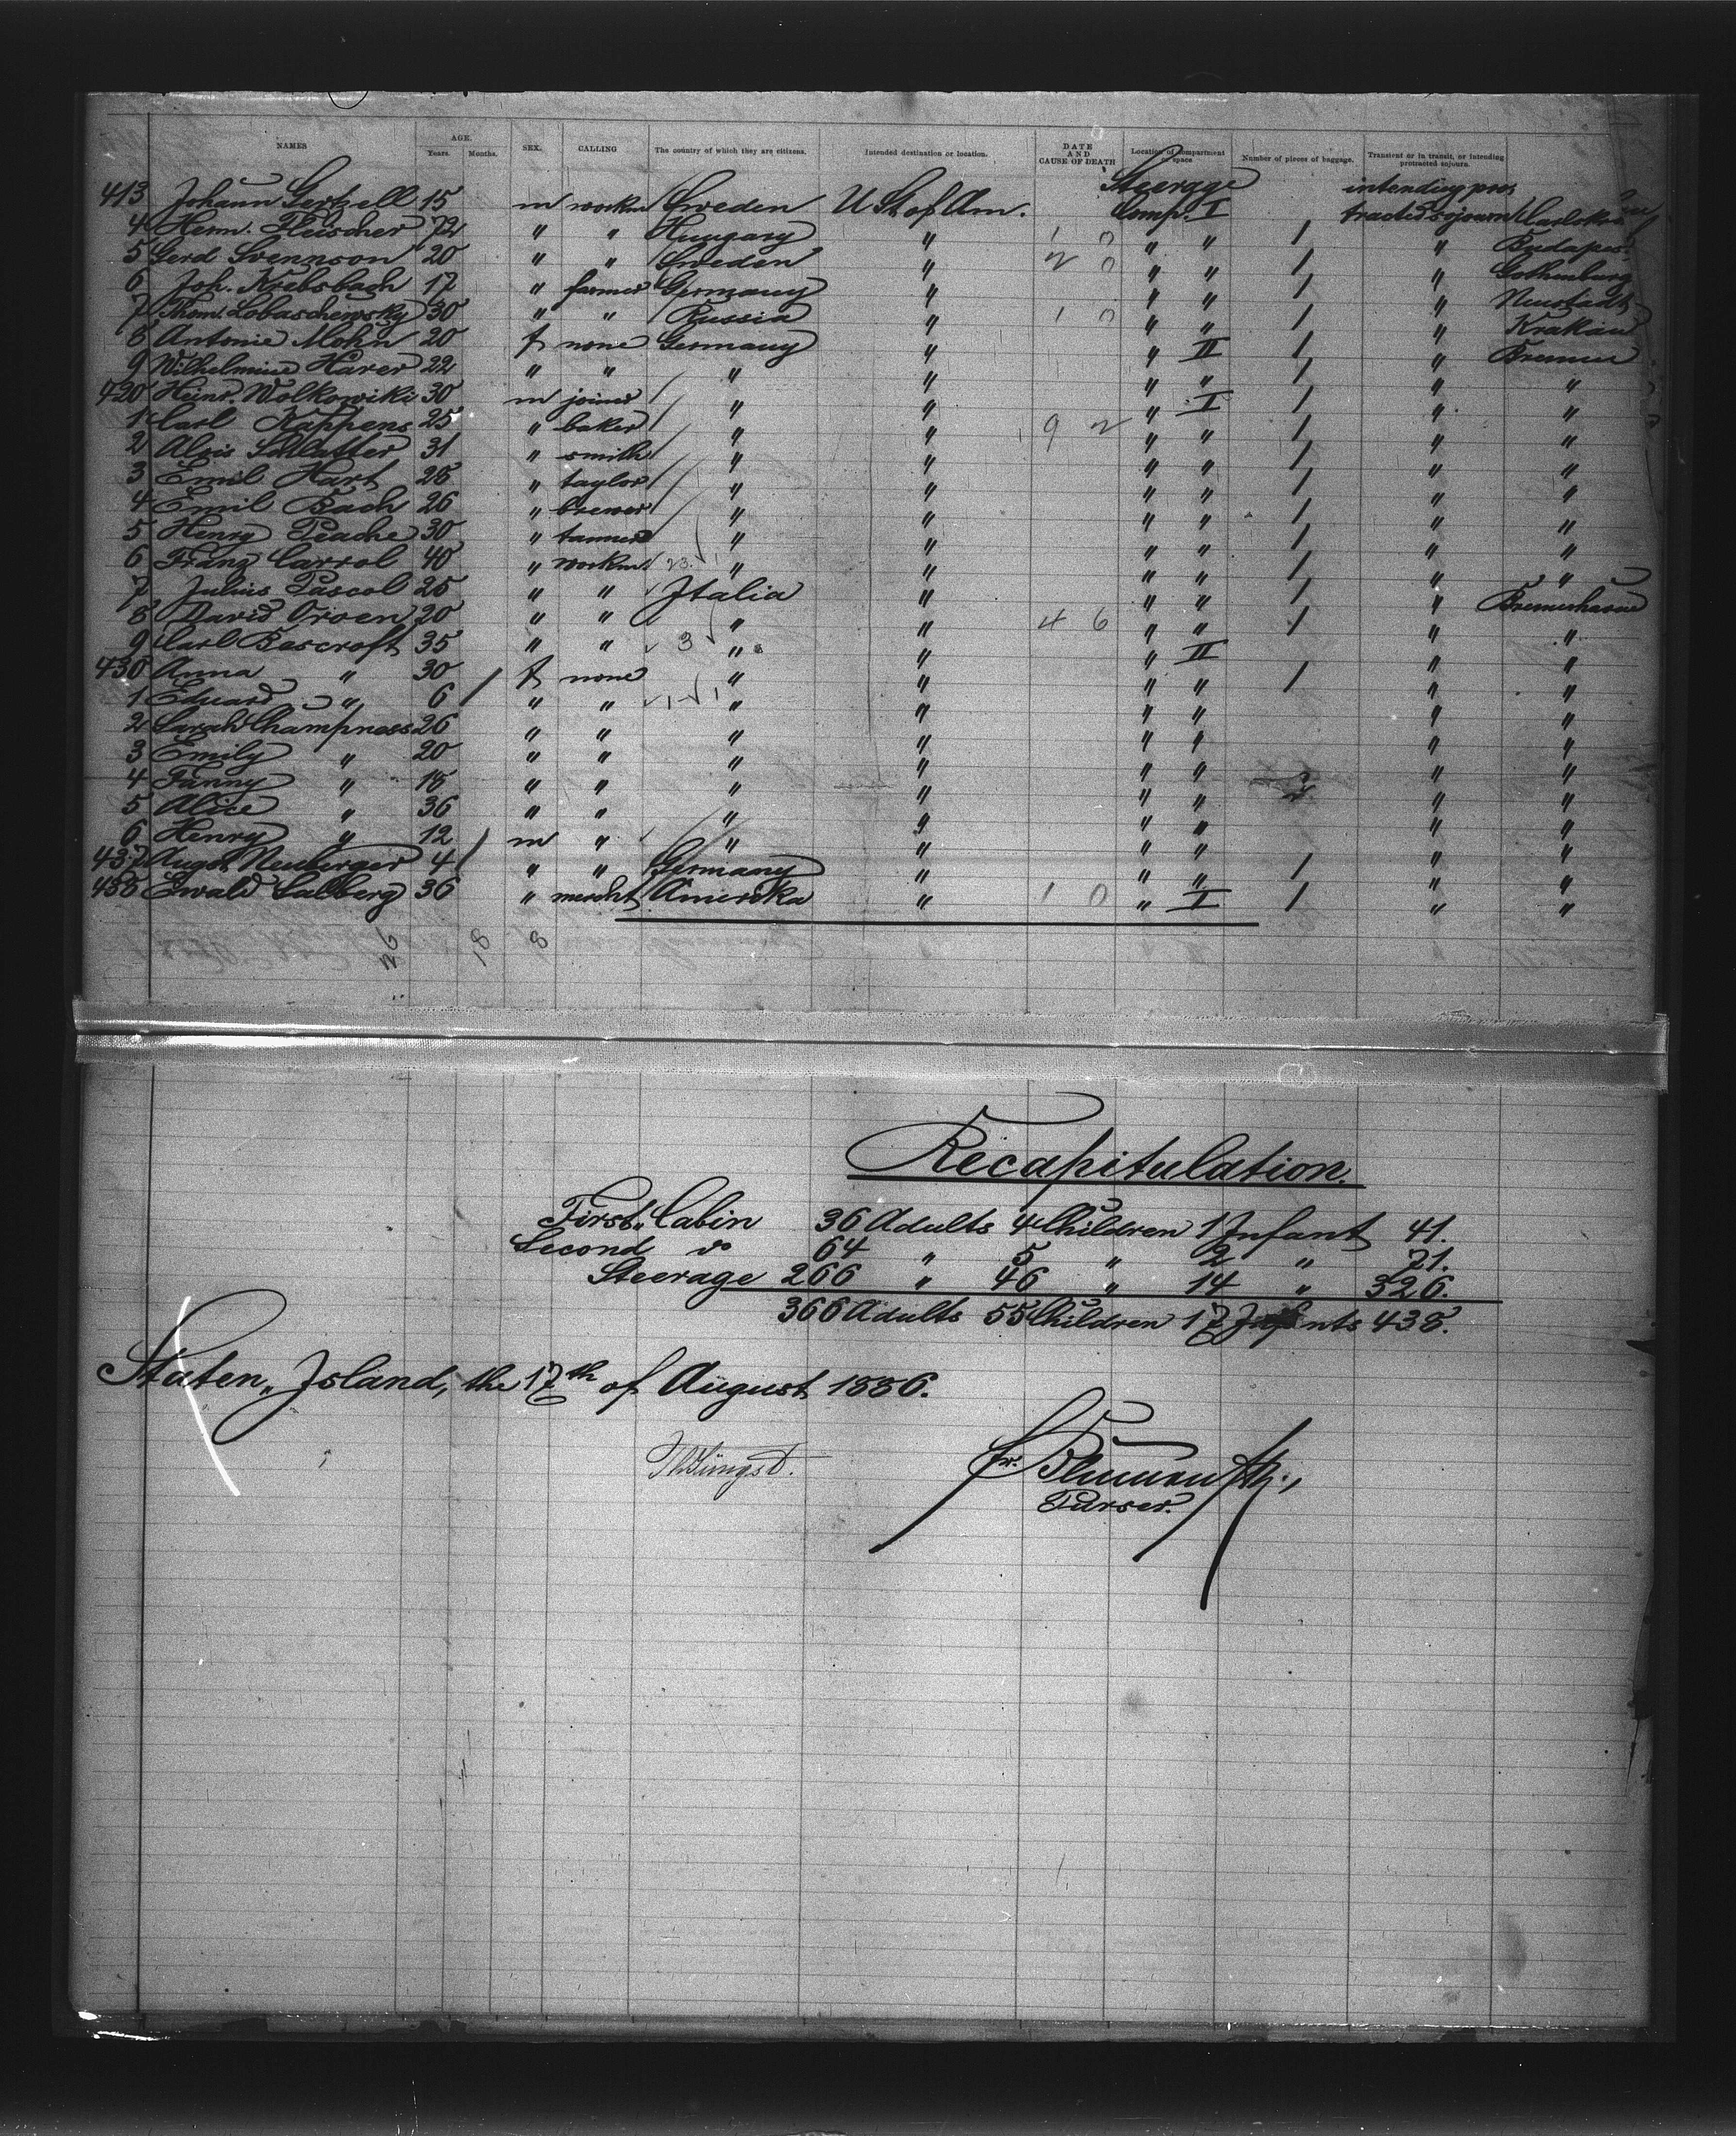 NAMES AGE. Years. Months. SEX. CALLING The country of which they are citizens. Intended destination or location. DATE AND CAUSE OF DEATH Location of compartment or space Number of pieces of baggage. Transient or in transit, or intending protracted sojourn.
Steerage intending pro,
413 Johann Gertzell 15 m workm Sweden U St of Am. Comp. I tracted sojourn
4 Herm. Fleischer 72 " " Hungary " 1 0 " " 1 " Budapest
5 Gerd Svennson 20 " " Sweden " 2 0 " " 1 " Gothenburg
6 Joh. Krebsbach 17 " farmer Germany " " " 1 " Neustadt
7 Thom. Lobaschewsky 30 " " Russia " 1 0 " " 1 " Krakau
8 Antonie Mohn 20 f none Germany " " II 1 " Bremen
9 Wilhelmine Harer 22 " " " " " " 1 " "
420 Heinr. Wolkowiki 30 m joiner " " " I 1 " "
1 Carl Kappens 25 " baker " " 9 2 " " 1 " "
2 Alois Schlatter 31 " smith " " " " 1 " "
3 Emil Hart 28 " taylor " " " " 1 " "
4 Emil Bach 26 " brewer " " " " 1 " "
5 Henry Peache 30 " tanner " " " " 1 " "
6 Franz Carrol 40 " workm 23 " " " " 1 " "
7 Julius Pascol 25 " " Italia " " " 1 " Bremerhaven
8 David Oroen 20 " " " " 4 6 " " 1 " "
9 Carl Bescroft 35 " " 3 " " " II " "
430 Anna " 30 f none " " " " 1 " "
1 Eduard " 6 " " 1 1 " " " " " "
2 Sarah Champness 26 " " " " " " " "
3 Emily " 20 " " " " " " " "
4 Fanny " 18 " " " " " " 2 " "
5 Alice " 36 " " " " " " " "
6 Henry " 12 m " " " " " " "
437 August Neuberger 4 " " Germany " " " 1 " "
438 Ewald Calberg 36 " mercht Amerika " 1 0 " I 1 " "
26 18 8
Recapitulation.
First Cabin 36 Adults 4 Children 1 Infant 41.
Second do 64 " 5 " 2 " 71.
Steerage 266 " 46 " 14 " 326.
366 Adults 55 Children 17 Infants 438.
Staten Island, the 17th of August 1886.
Purser.